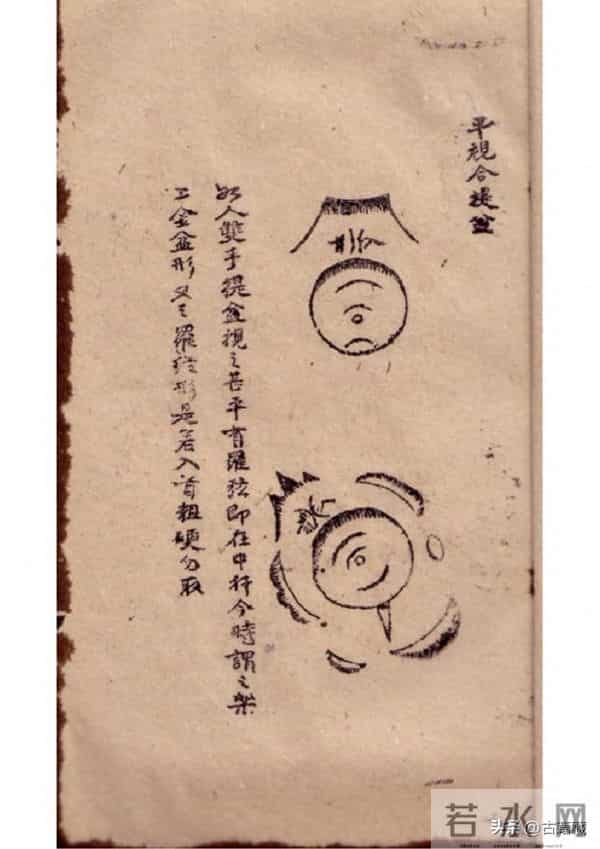 平視合提盆
如人雙手提盆視之甚平有羅弦即在中行今時謂之架
上金盆形又之羅弦形是若入首粗硬勿取
若水网
头条@古